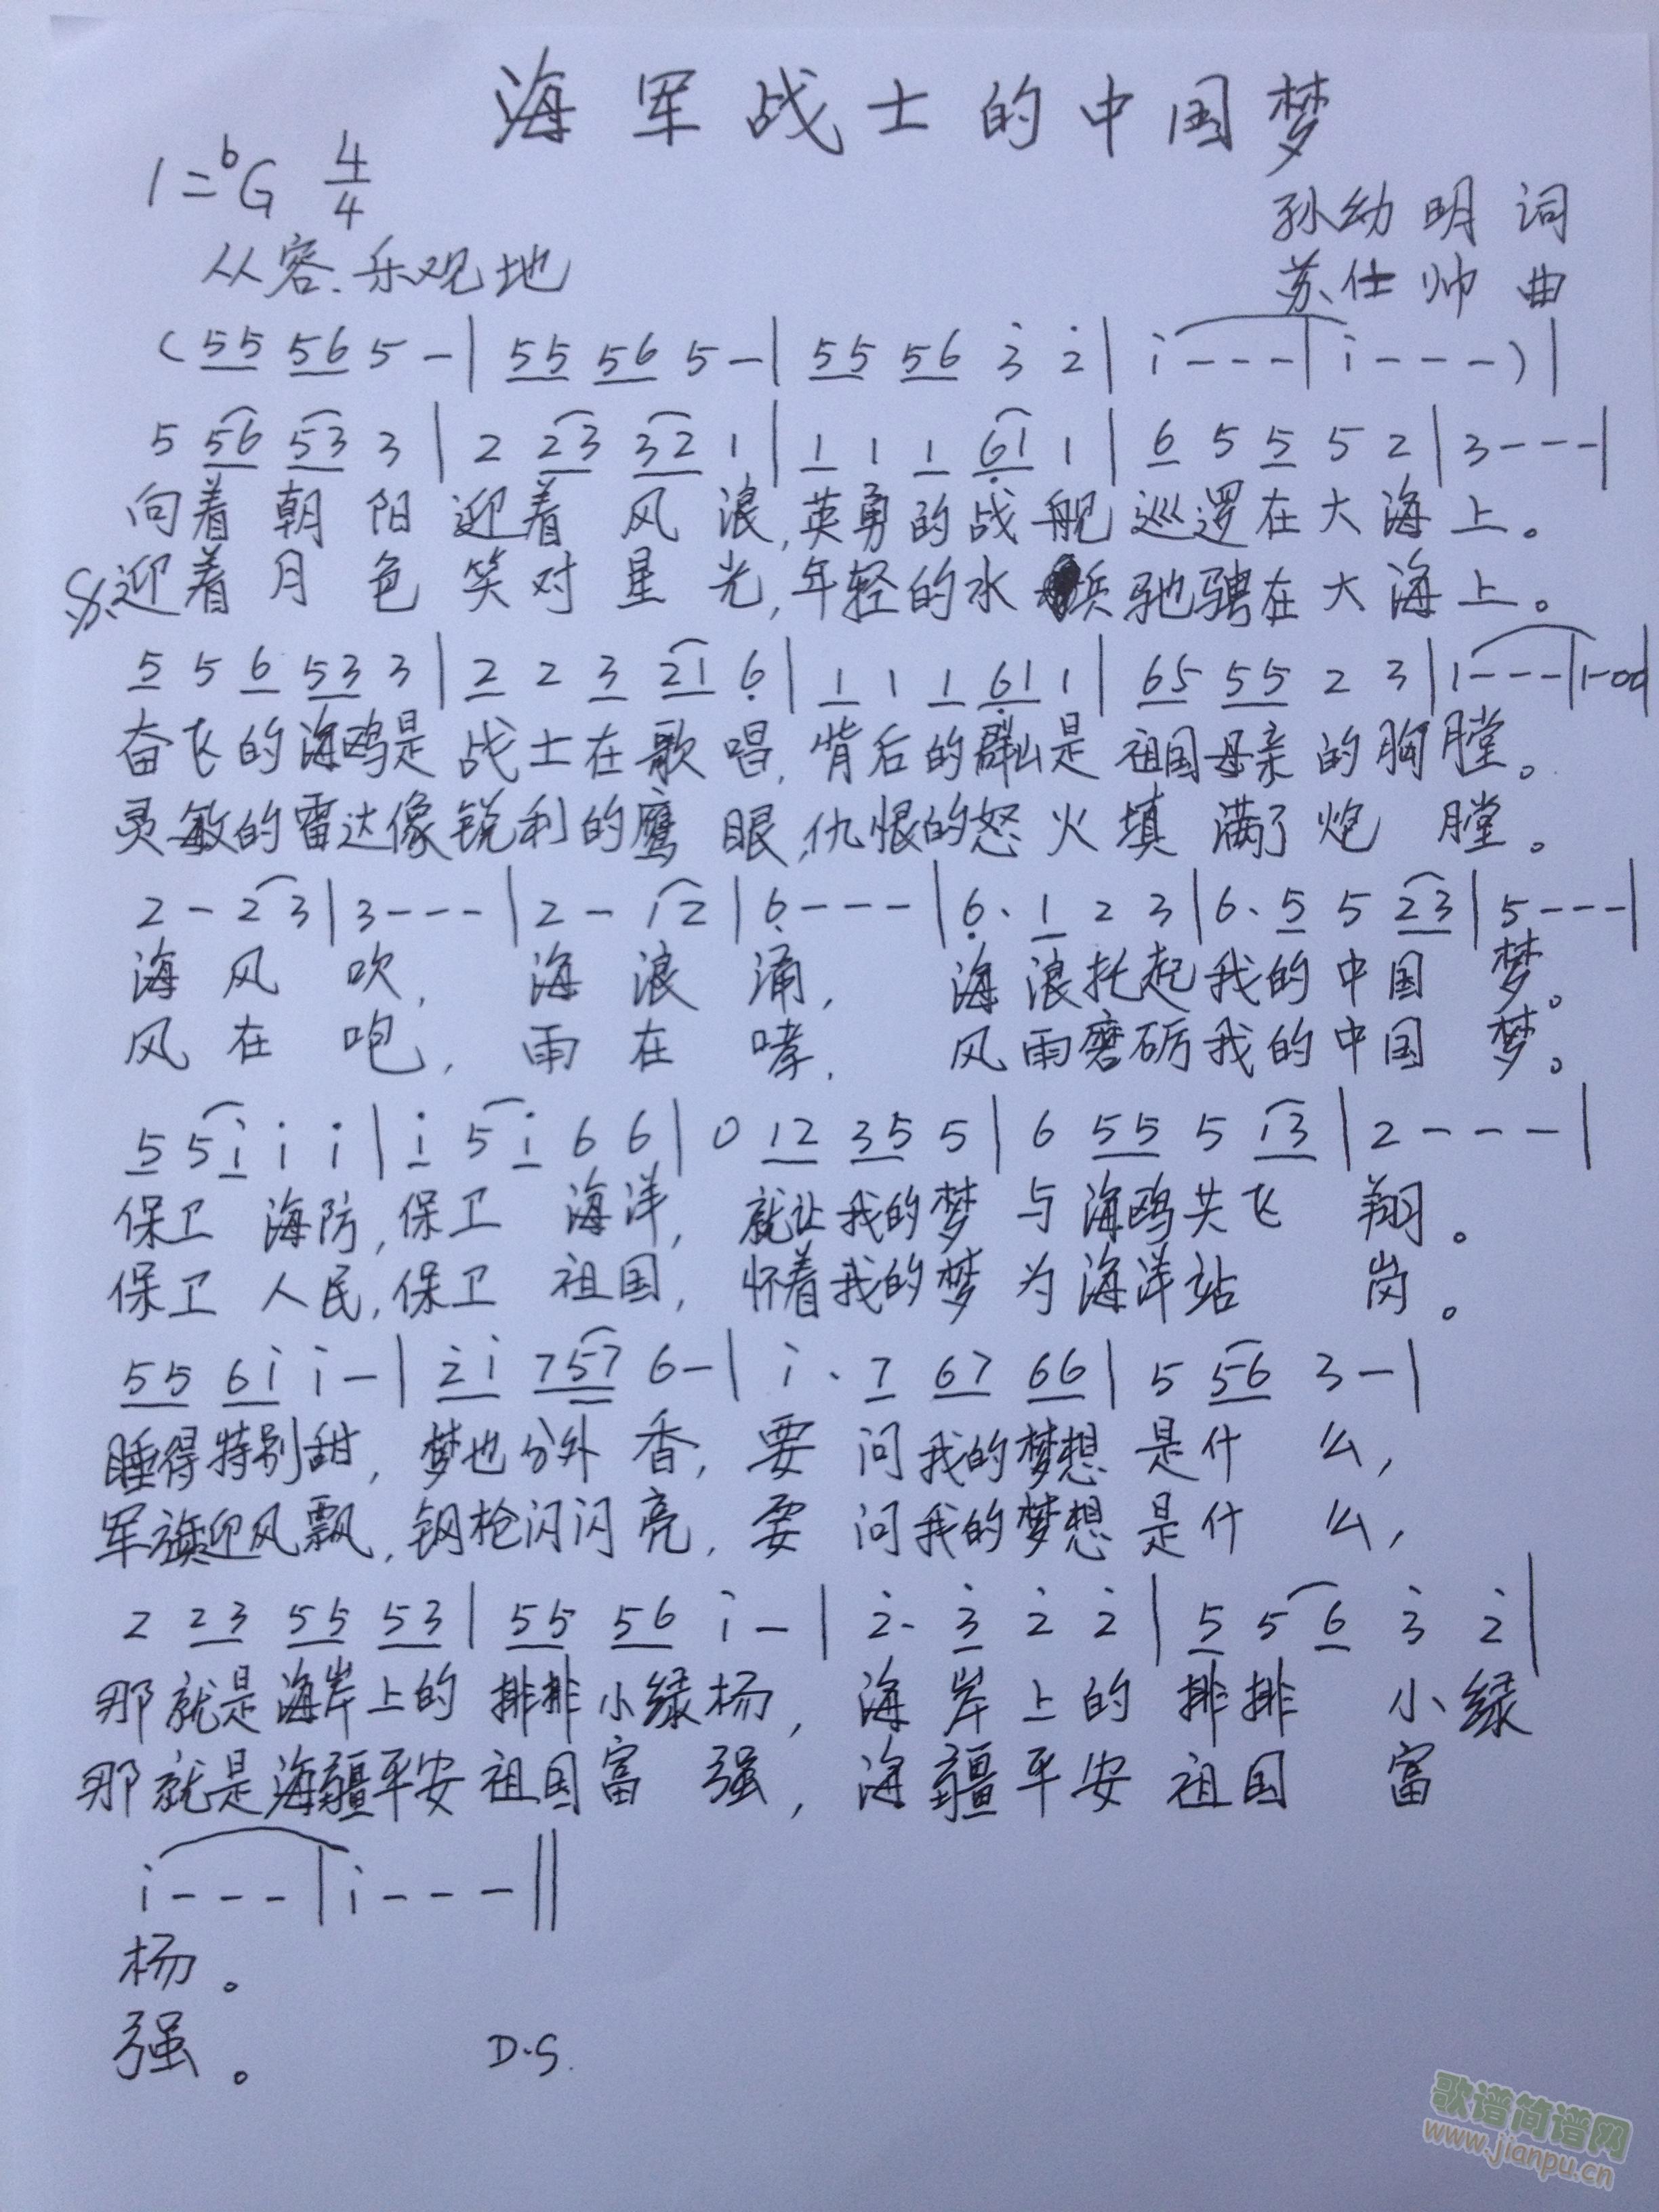 海军战士的中国梦
1=ᵇG 4/4
孙幼明 词
从容、乐观地
苏仕帅 曲
(55 56 5 -| 55 56 5 -| 55 56 3̇ 2̇ | i - - - | i - - - )|
5 56 53 3 | 2 23 32 1 | 1 1 1 6̣1 1 | 6 5 5 5 2 | 3 - - - |
向着朝阳迎着风浪,英勇的战舰巡逻在大海上。
迎着月色笑对星光,年轻的水兵驰骋在大海上。
5 5 6 53 3 | 2 2 3 21 6̣ | 1 1 1 6̣1 1 | 65 55 2 3 | 1 - - - | 1 - 0 0 |
奋飞的海鸥是战士在歌唱,背后的群山是祖国母亲的胸膛。
灵敏的雷达像锐利的鹰眼,仇恨的怒火填满了炮膛。
2 - 23 | 3 - - - | 2 - 12 | 6̣ - - - | 6̣· 1 2 3 | 6· 5 5 23 | 5 - - - |
海风吹,海浪涌,海浪托起我的中国梦。
风在咆,雨在哮,风雨磨砺我的中国梦。
5 5i i i | i 5i 6 6 | 0 12 35 5 | 6 55 5 13 | 2 - - - |
保卫海防,保卫海洋,就让我的梦与海鸥共飞翔。
保卫人民,保卫祖国,怀着我的梦为海洋站岗。
55 6i i - | 2̇i 757 6 - | i· 7 67 66 | 5 56 3 - |
睡得特别甜,梦也分外香,要问我的梦想是什么,
军旗迎风飘,钢枪闪闪亮,要问我的梦想是什么,
2 23 55 53 | 55 56 i - | 2̇· 3̇ 2̇ 2̇ | 5 5 6 3̇ 2̇ |
那就是海岸上的排排小绿杨,海岸上的排排小绿
那就是海疆平安祖国富强,海疆平安祖国富
i - - - | i - - - ||
杨。
强。 D.S.
歌谱简谱网
www.jianpu.cn